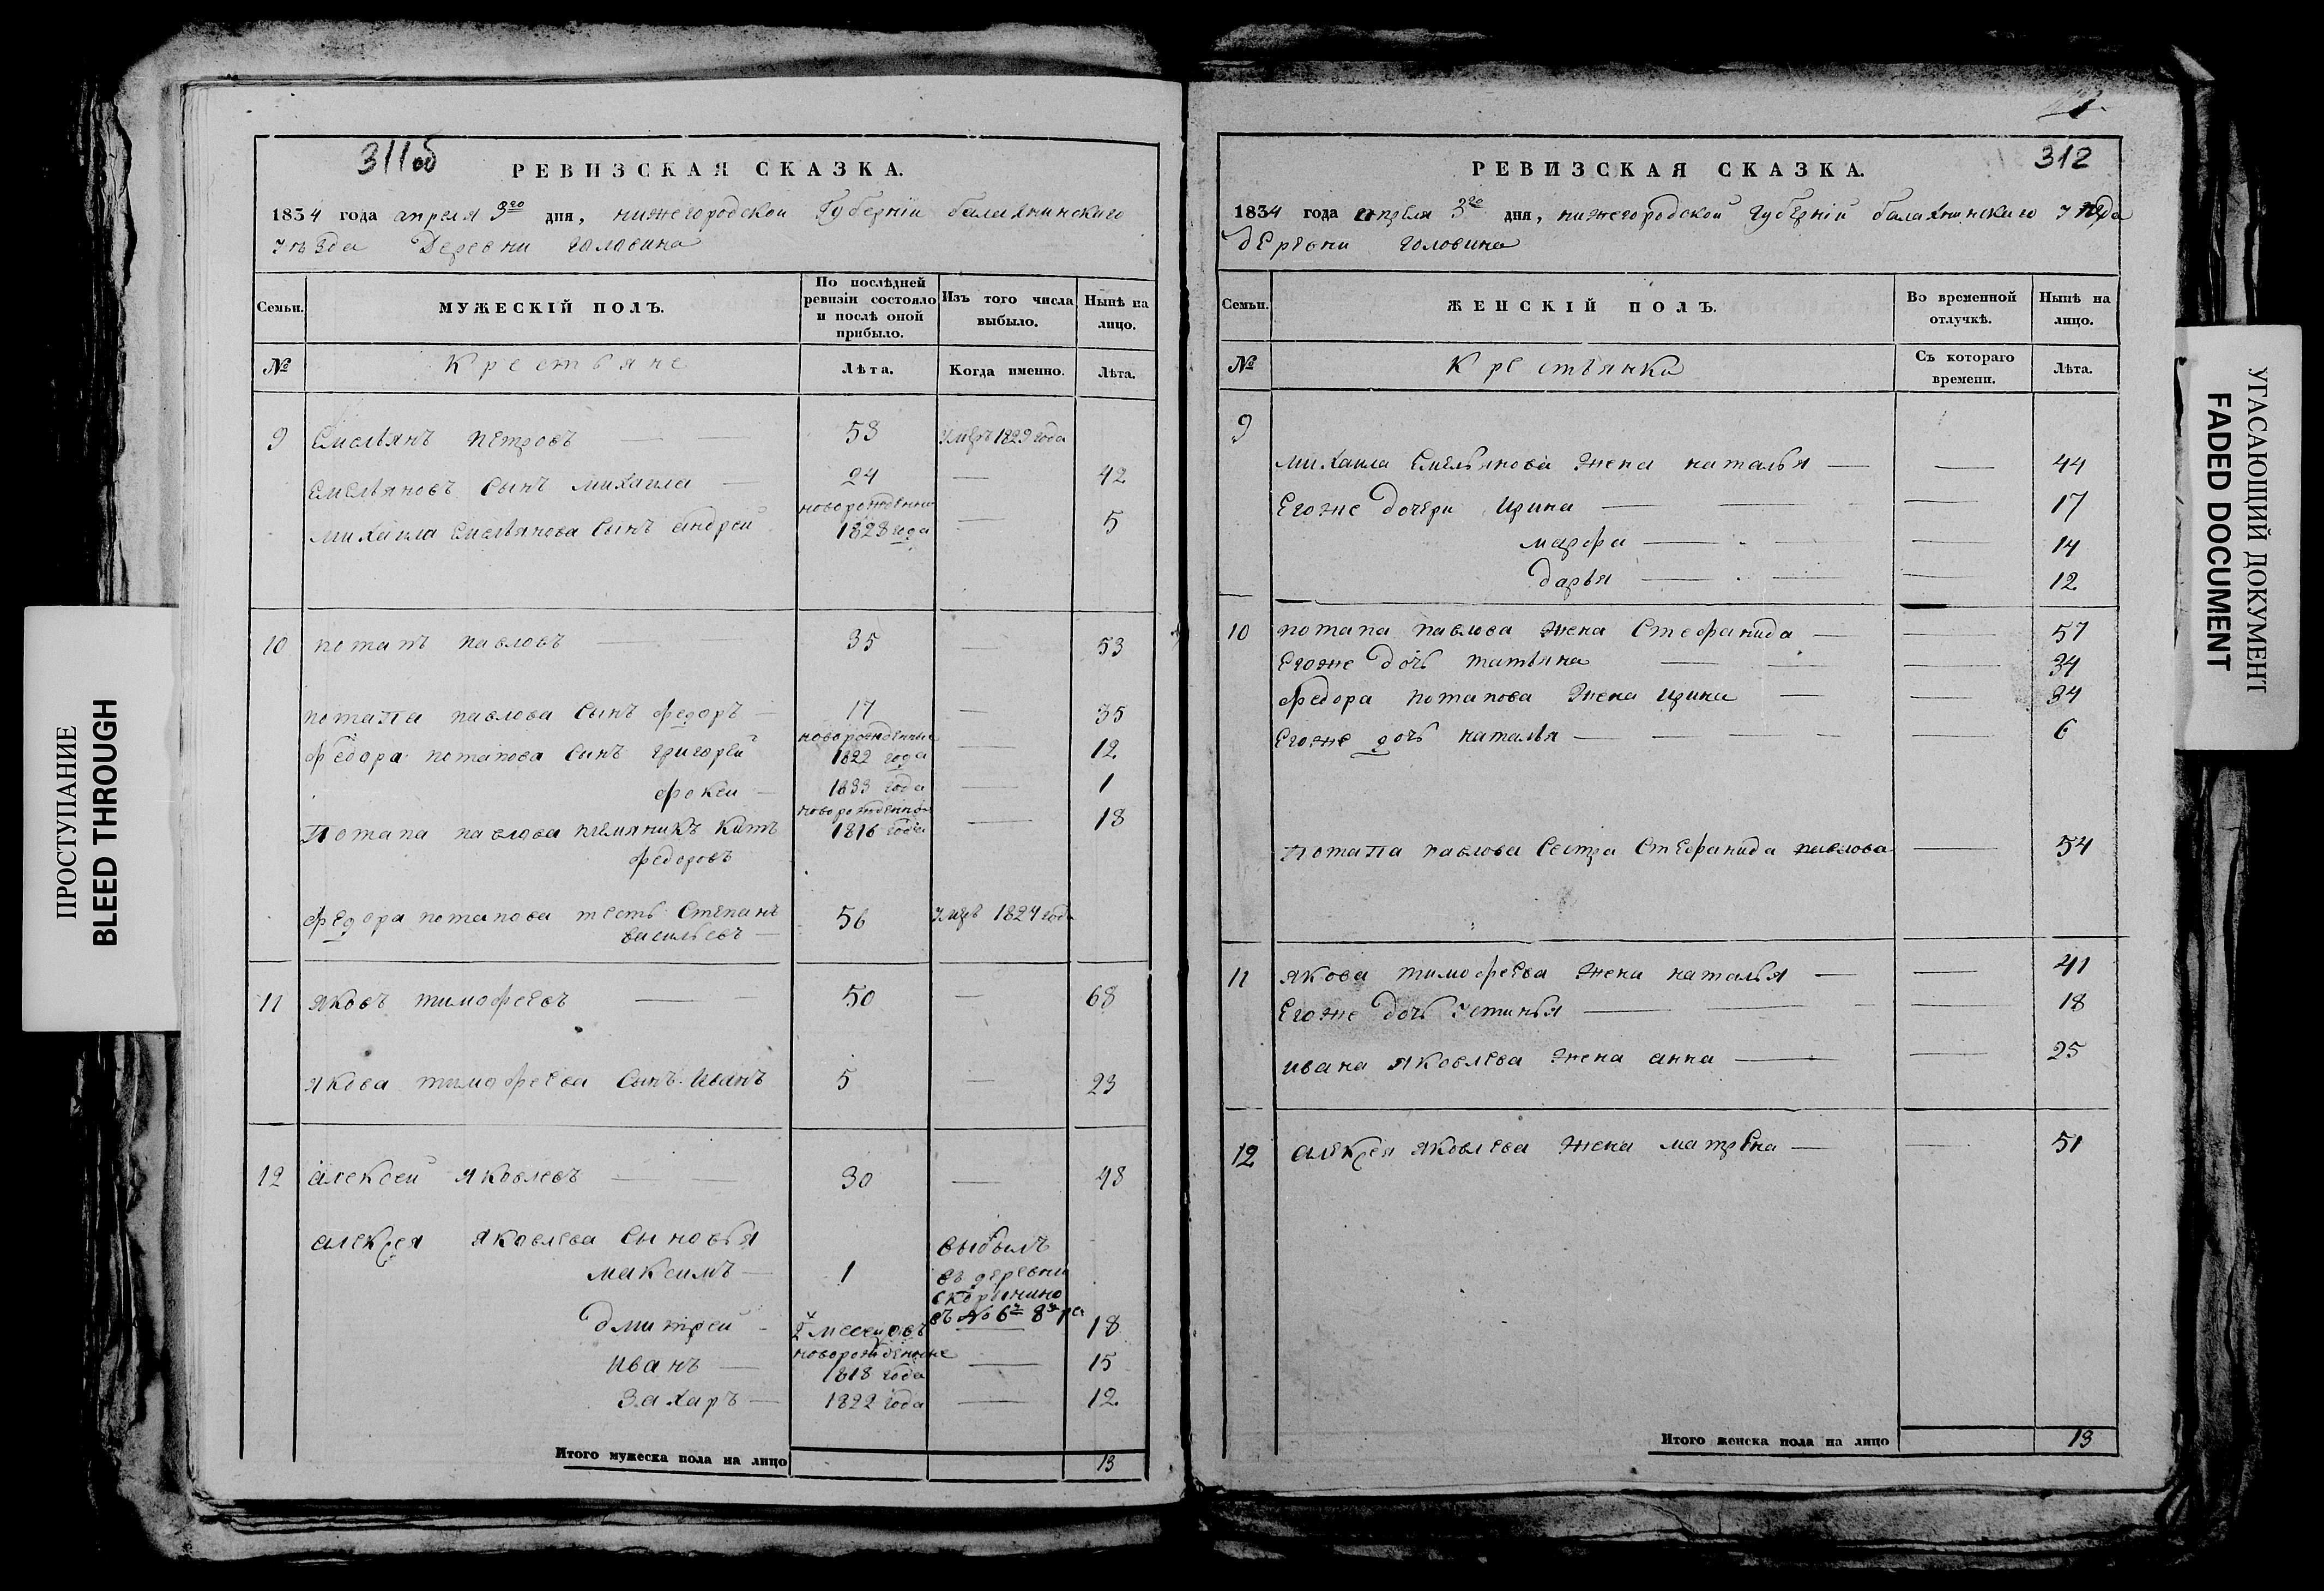 311об
РЕВИЗСКАЯ СКАЗКА.
1834 года апреля 3го дня, нижегородской Губерніи балахнинскаго
уѣзда Деревни головина
Семьи. МУЖЕСКІЙ ПОЛЪ. По послѣдней ревизіи состояло и послѣ оной прибыло. Изъ того числа выбыло. Нынѣ на лицо.
№ Крестьяне Лѣта. Когда именно. Лѣта.
9 Емельянъ петровъ 58 умеръ 1829 года
Емельяновъ сынъ михаила 24 42
михаила Емельянова сынъ андрей новорожденны 1828 года 5
10 потапъ павловъ 35 53
потапа павлова сынъ федоръ 17 35
федора потапова сынъ григорей новорожденные 1822 года 12
фокей 1833 года 1
Потапа павлова племяникъ китъ новорожденной 1816 года 18
федоровъ
федора потапова тесть степанъ 56 умеръ 1824 года
васильевъ
11 яковъ тимофеевъ 50 68
якова тимофеева сынъ иванъ 5 23
12 алексей яковлевъ 30 48
алексея яковлева сыновья выбылъ
максимъ 1 въ деревни
скорынино
въ №6й 8й ре
дмитрей месецовъ 18
иванъ новорожденные 1818 года 15
захаръ 1822 года 12
Итого мужеска пола на лицо 13
312
РЕВИЗСКАЯ СКАЗКА.
1834 года апреля 3го дня, нижегородской губерній балахнинскаго уѣзда
деревни головина
Семьи. ЖЕНСКІЙ ПОЛЪ. Во временной отлучкѣ. Нынѣ на лицо.
№ Крестьянки Съ котораго времени. Лѣта.
9
михаила Емельянова жена наталья 44
Егоже дочери ирина 17
марфа 14
дарья 12
10 потапа павлова жена стефанида 57
Егоже дочь татьяна 34
федора потапова жена ирина 34
Егоже дочь наталья 6
потапа павлова сестра стефанида павлова 54
11 якова тимофеева жена наталья 41
Егоже дочь устинья 18
ивана яковлева жена анна 25
12 алексея яковлева жена матрена 51
Итого женска пола на лицо 13
ПРОСТУПАНИЕ
BLEED THROUGH
УГАСАЮЩИЙ ДОКУМЕНТ
FADED DOCUMENT